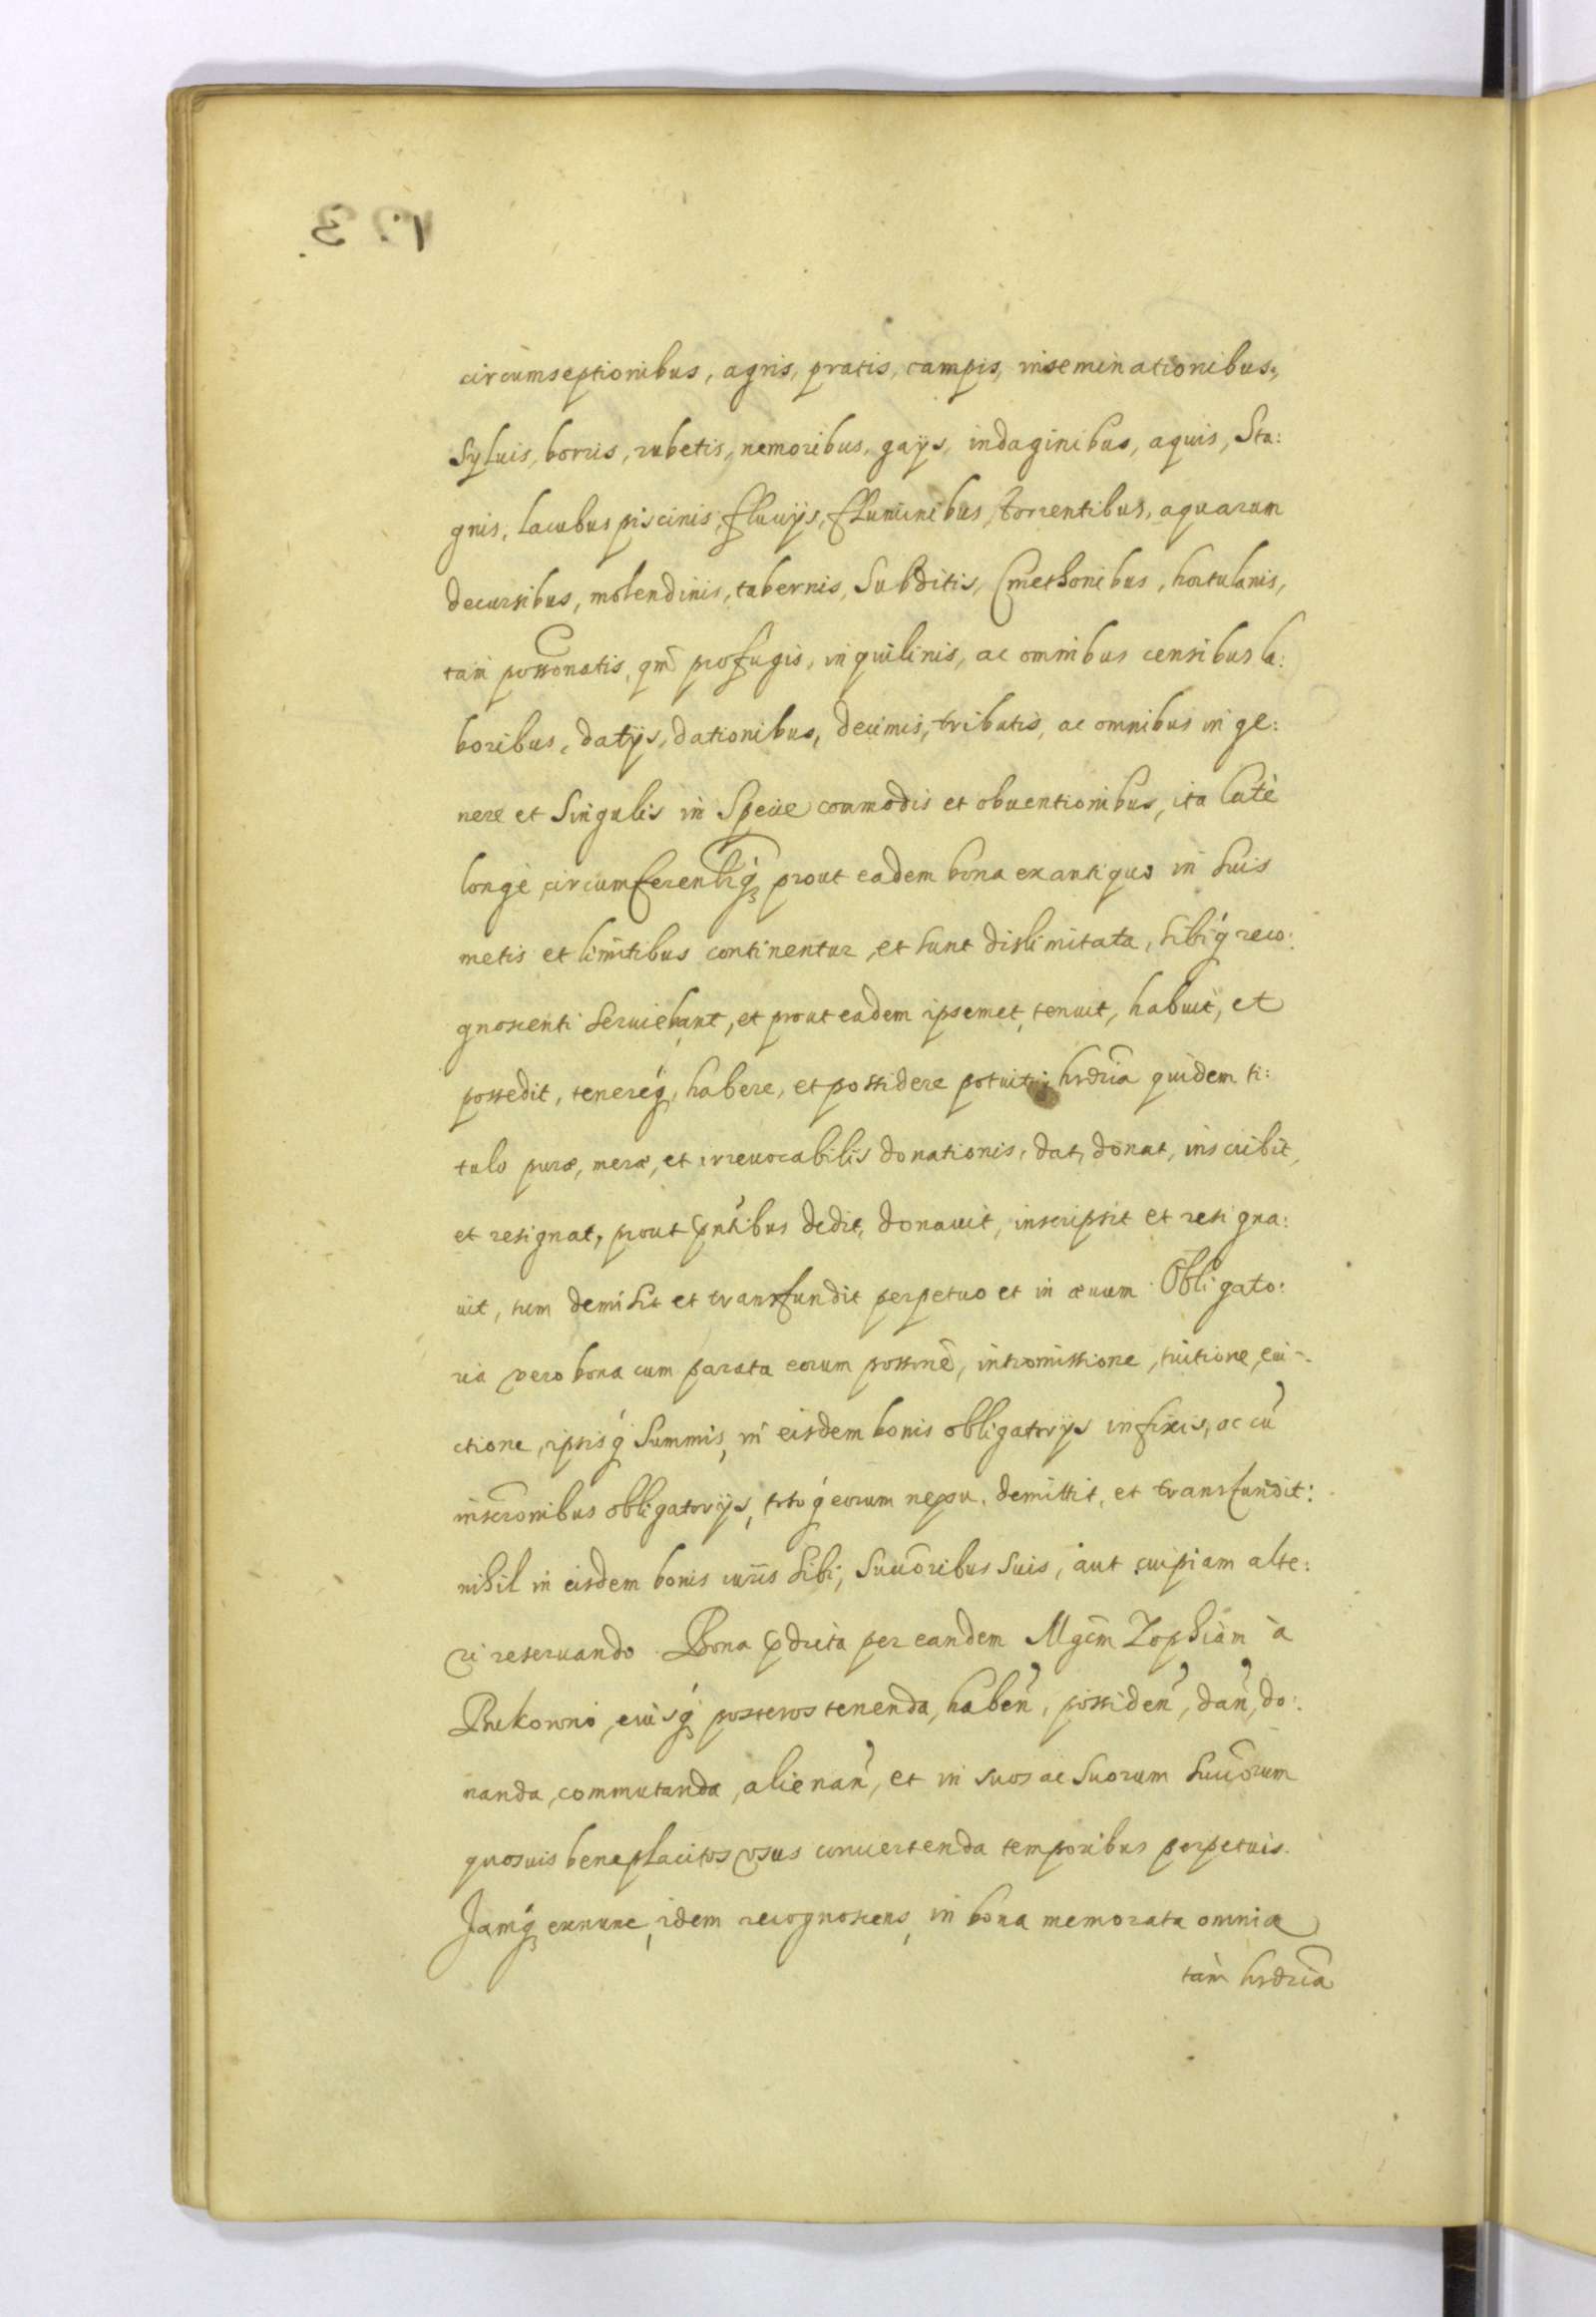 circumseptionibus, agris, pratis, campis, inseminationibus,
Syluis, borris, rubetis, nemoribus, gaÿs, indaginibus, aquis, Sta:
gnis, lacubus piscinis, fluuÿs, fluminibus, torrentibus, aquarum
decursibus, molendinis, tabernis, Subditis, Cmethonibus, hortulanis,
tam possonatis, qm̃ profugis, inquilinis, ac omnibus censibus la:
boribus, datÿs, dationibus, decimis, tributis, ac omnibus in ge:
nere et Singulis in Specie commodis et obuentionibus, ita latè
longè, circumferentirq́ꝫ prout eadem bona ex antiquo in suis
metis et limitibus continentur, et sunt dislimitata, sibiq́ reco:
gnoscenti seruiebant, et prout eadem ipsemet, tenuit, habuit, et
possedit, tenereq́, habere, et possidere potuit; hrdria quidem ti:
tulo puræ, meræ, et irreuocabilis donationis, dat, donat, inscribit,
et resignat, prout pñtibus dedit, donauit, inscripsit et resigna:
uit, tum demisit et transfundit perpetuo et in æuum. Obligato:
ria vero bona cum parata eorum possnẽ, intromissione, tuitione, eui:
ctione, ipsisq́ Summis, in eisdem bonis obligatorÿs infixis, ac cũ
inscronibus obligatorÿs, totoq́ eorum nexu, demittit, et transfundit:
nihil in eisdem bonis iuris sibi, Succoribus suis, aut cuipiam alte:
ri reseruando. Bona pdicta per eandem Mgcm Zophiam à
Bukowno, eiusq́ꝫ posteros tenenda, habeñ, possideñ, dañ, do:
nanda, commutanda, alienañ, et in suos ac Suorum Succorum
quosuis beneplacitos vsus conuertenda temporibus perpetuis.
Jamq́ꝫ exnunc, idem recognoscens, in bona memorata omnia
tam hrdria